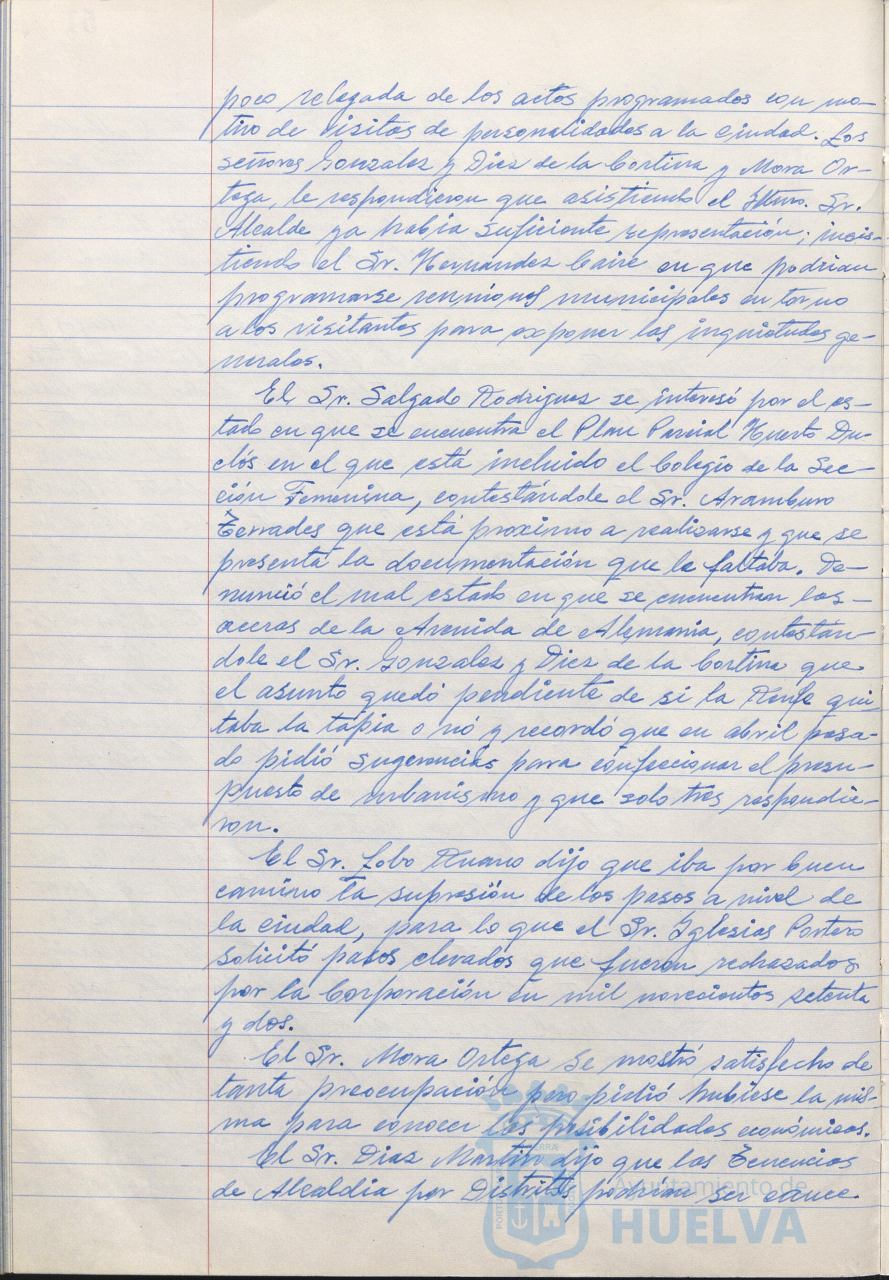 poco relegada de los actos programados con mo-
tivo de visitas de personalidades a la ciudad. Los
señores Gonzalez y Diez de la Cortina y Mora Or-
tega, le respondieron que asistiendo el Iltmo. Sr.
Alcalde ya habia suficiente representación; insis-
tiendo el Sr. Hernandez Caire en que podrian
programarse reuniones municipales en torno
a los visitantes para exponer las inquietudes ge-
nerales.
El Sr. Salgado Rodriguez se interesó por el es-
tado en que se encuentra el Plan Parcial Huerto Du-
clós en el que está incluido el Colegio de la Sec-
ción Femenina, contestándole el Sr. Aramburo
Terrades que está proximo a realizarse y que se
presentá la documentación que le faltaba. De-
nunció el mal estado en que se encuentran las-
aceras de la Avenida de Alemania, contestán-
dole el Sr. Gonzalez y Diez de la Cortina que
el asunto quedó pendiente de si la Renfe qui
taba la tápia o nó y recordó que en abril pasa-
do pidió sugerencias para confeccionar el presu-
puesto de urbanismo y que solo tres respondie-
ron.
El Sr. Lobo Ruano dijo que iba por buen
camino la supresión de los pasos a nivel de
la ciudad, para lo que el Sr. Iglesias Portero
solicitó pasos elevados que fueron rechazados
por la Corporación en mil novecientos setenta
y dos.
El Sr. Mora Ortega se mostró satisfecho de
tanta preocupación pero pidió hubiese la mis-
ma para conocer las posibilidades económicas.
El Sr. Diaz Martin dijo que las Tenencias
de Alcaldia por Distritos podrian ser cauce
Ayuntamiento de
HUELVA